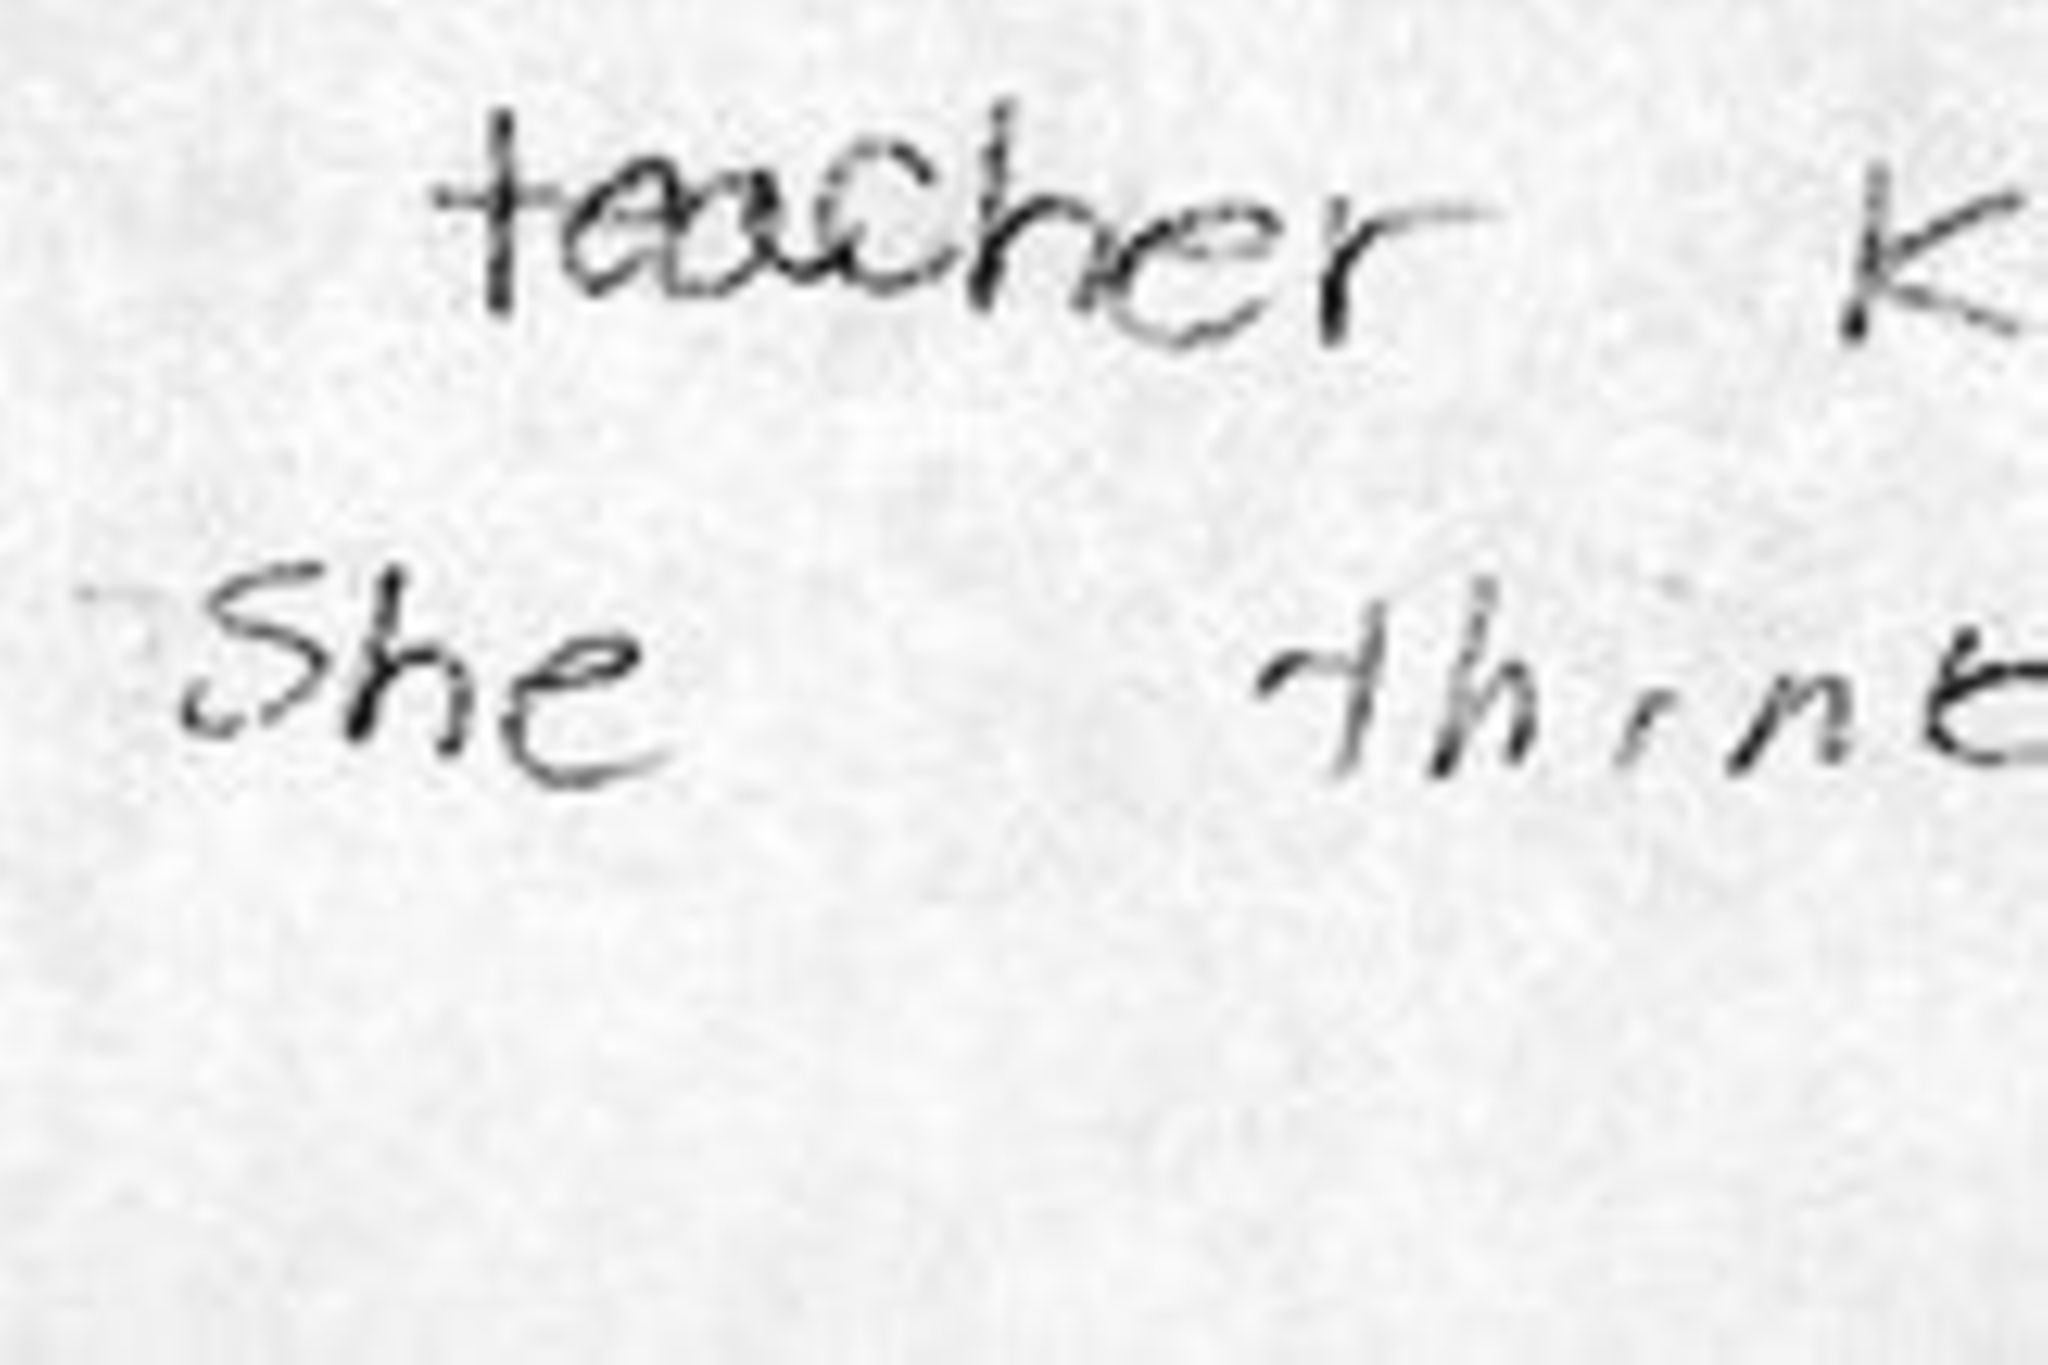 teacher K
She think